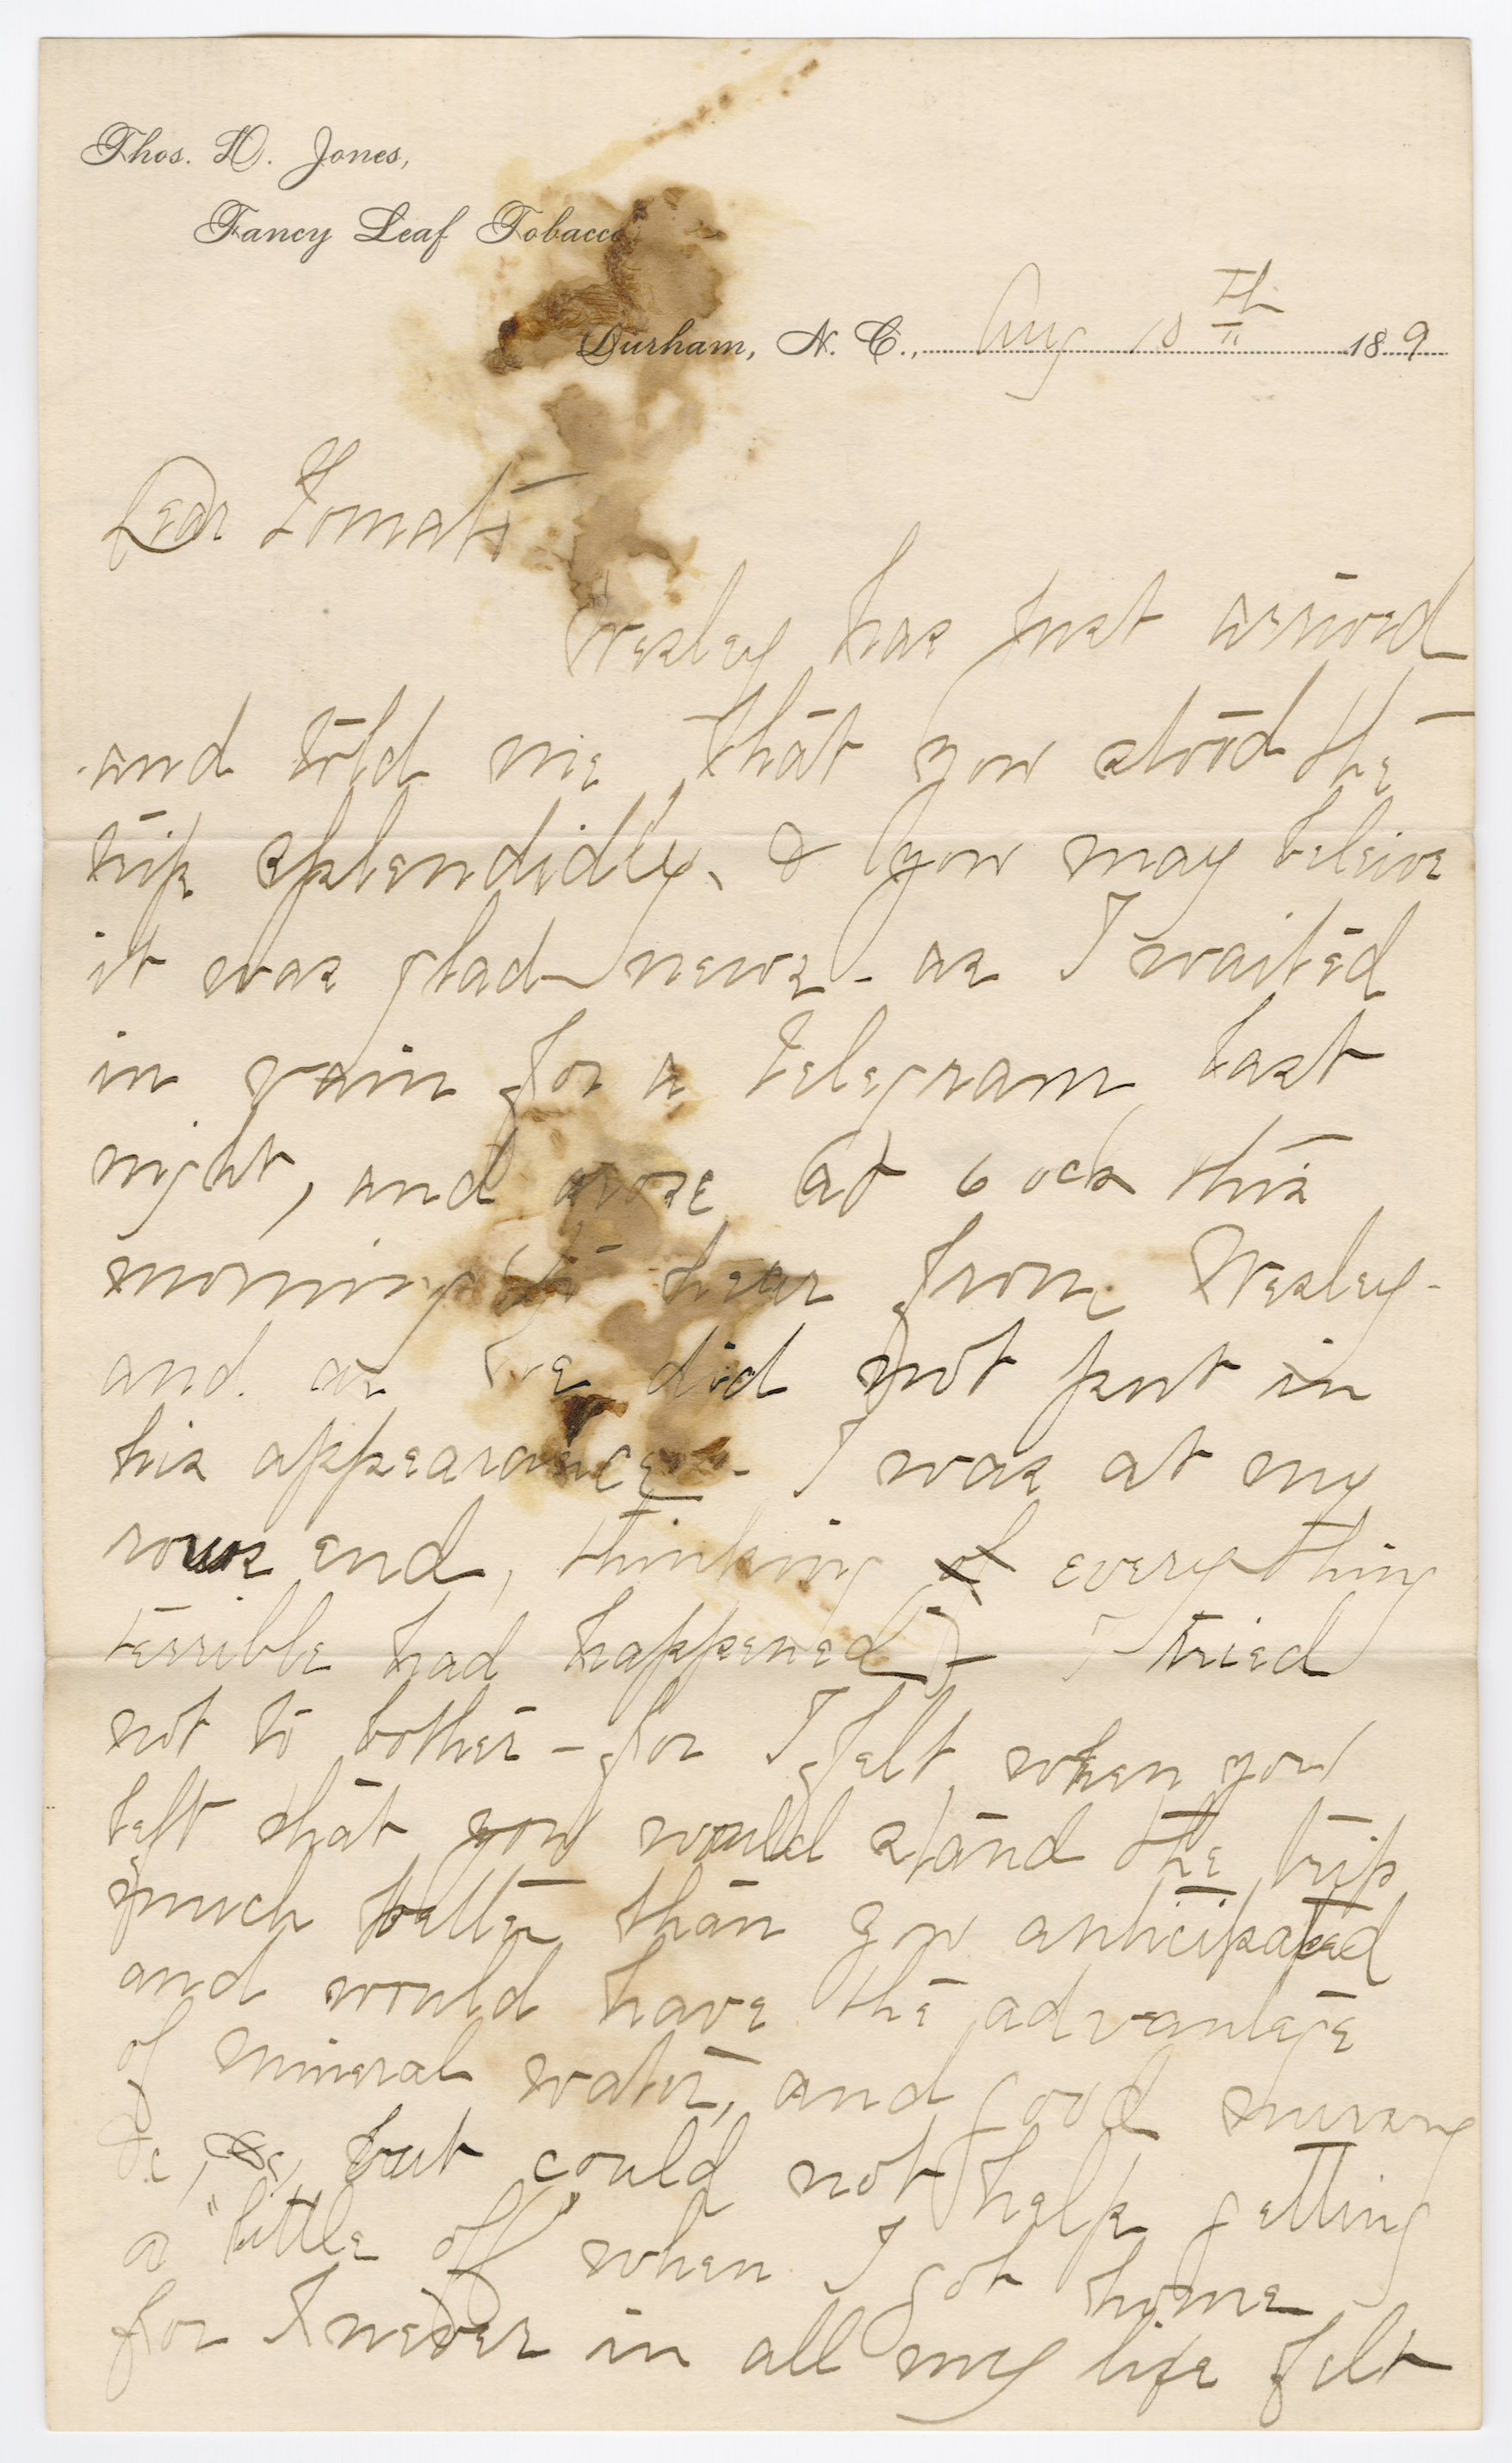 Thos. D. Jones,
Fancy Leaf Tobacco,
Durham, N. C., Aug 10th 189
Dear Tomato
Wesley has just arrived
and told me that you stood the
trip splendidly, & you may beleive
it was glad news - as I waited
in vain for a telegram last
night, and arose at 6 ock this
morning to hear from Wesley -
and as we did not put in
his appearance - I was at my
rows end, thinking of everything
terrible had happened - I tried
not to bother - for I felt when you
left that you would stand the trip
much better than you anticipated
and would have the advantage
of mineral water, and good nursing
&c, &c, but could not help getting
a "little off" when I got home
for I never in all my life felt